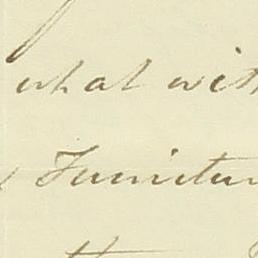 what with
Furnitur